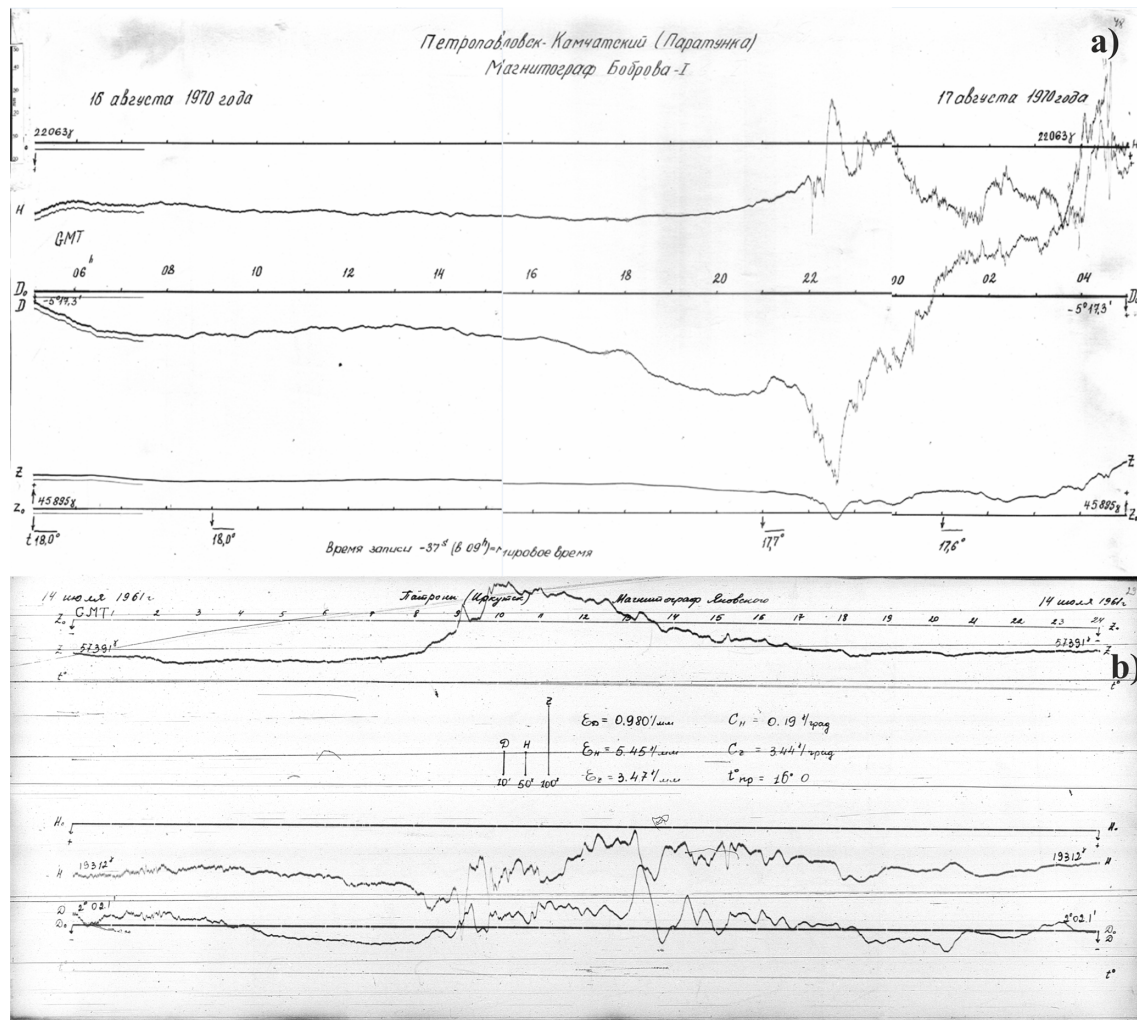 48
a)
Петропавловск-Камчатский (Паратунка)
Магнитограф Боброва-I
16 августа 1970 года
17 августа 1970 года
22063γ
22063γ
H
H
GMT
06ʰ 08 10 12 14 16 18 20 22 00 02 04
D₀
D₀
D
-5°17,3'
-5°17,3'
Z
Z
45895γ
45895γ
Z₀
Z₀
t 18,0°
18,0°
17,7°
17,6°
Время записи -37ˢ (в 09ʰ)=мировое время
14 июля 1961г
Патроны (Иркутск)
Магнитограф Яновского
14 июля 1961г
GMT 1 2 3 4 5 6 7 8 9 10 11 12 13 14 15 16 17 18 19 20 21 22 23 24
Z₀
Z₀
Z 57391ɣ
57391ɣ Z
b)
t°
t°
D H Z
10' 50ɣ 100ɣ
ℰD = 0.980'/мм
Cн = 0.19ɣ/град
ℰн = 5.45ɣ/мм
Cz = 3.44ɣ/град
ℰz = 3.47ɣ/мм
t°пр = 16°0
H₀
H₀
19312ɣ
19312ɣ
H
H
D 2°02.1'
2°02.1'
D₀
D₀
D
t°
t°